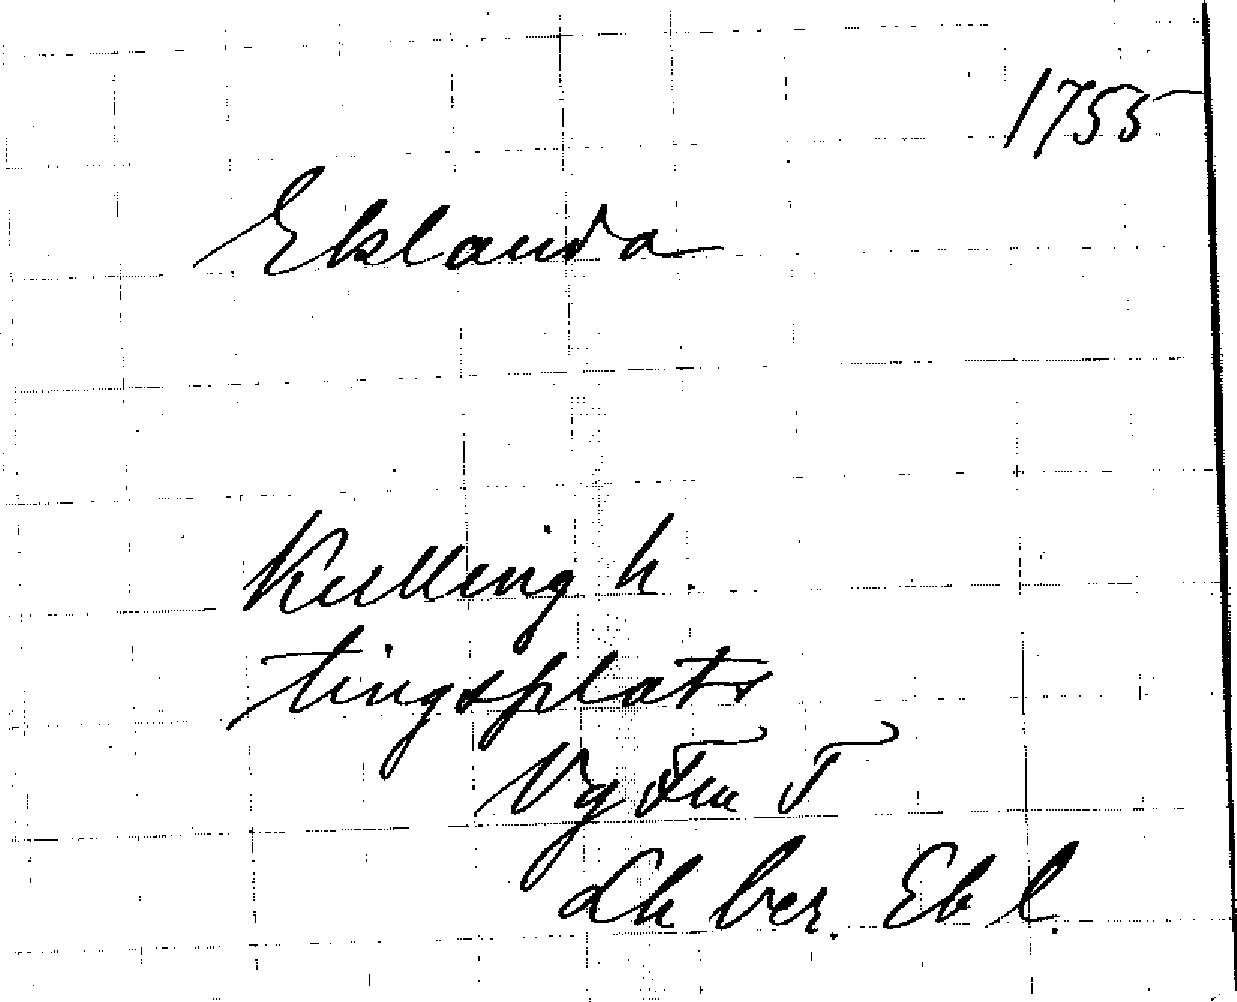 1755
Eklanda
Kulling h.
tingsplats
Vg Fm T
Lh ber. Ek l.